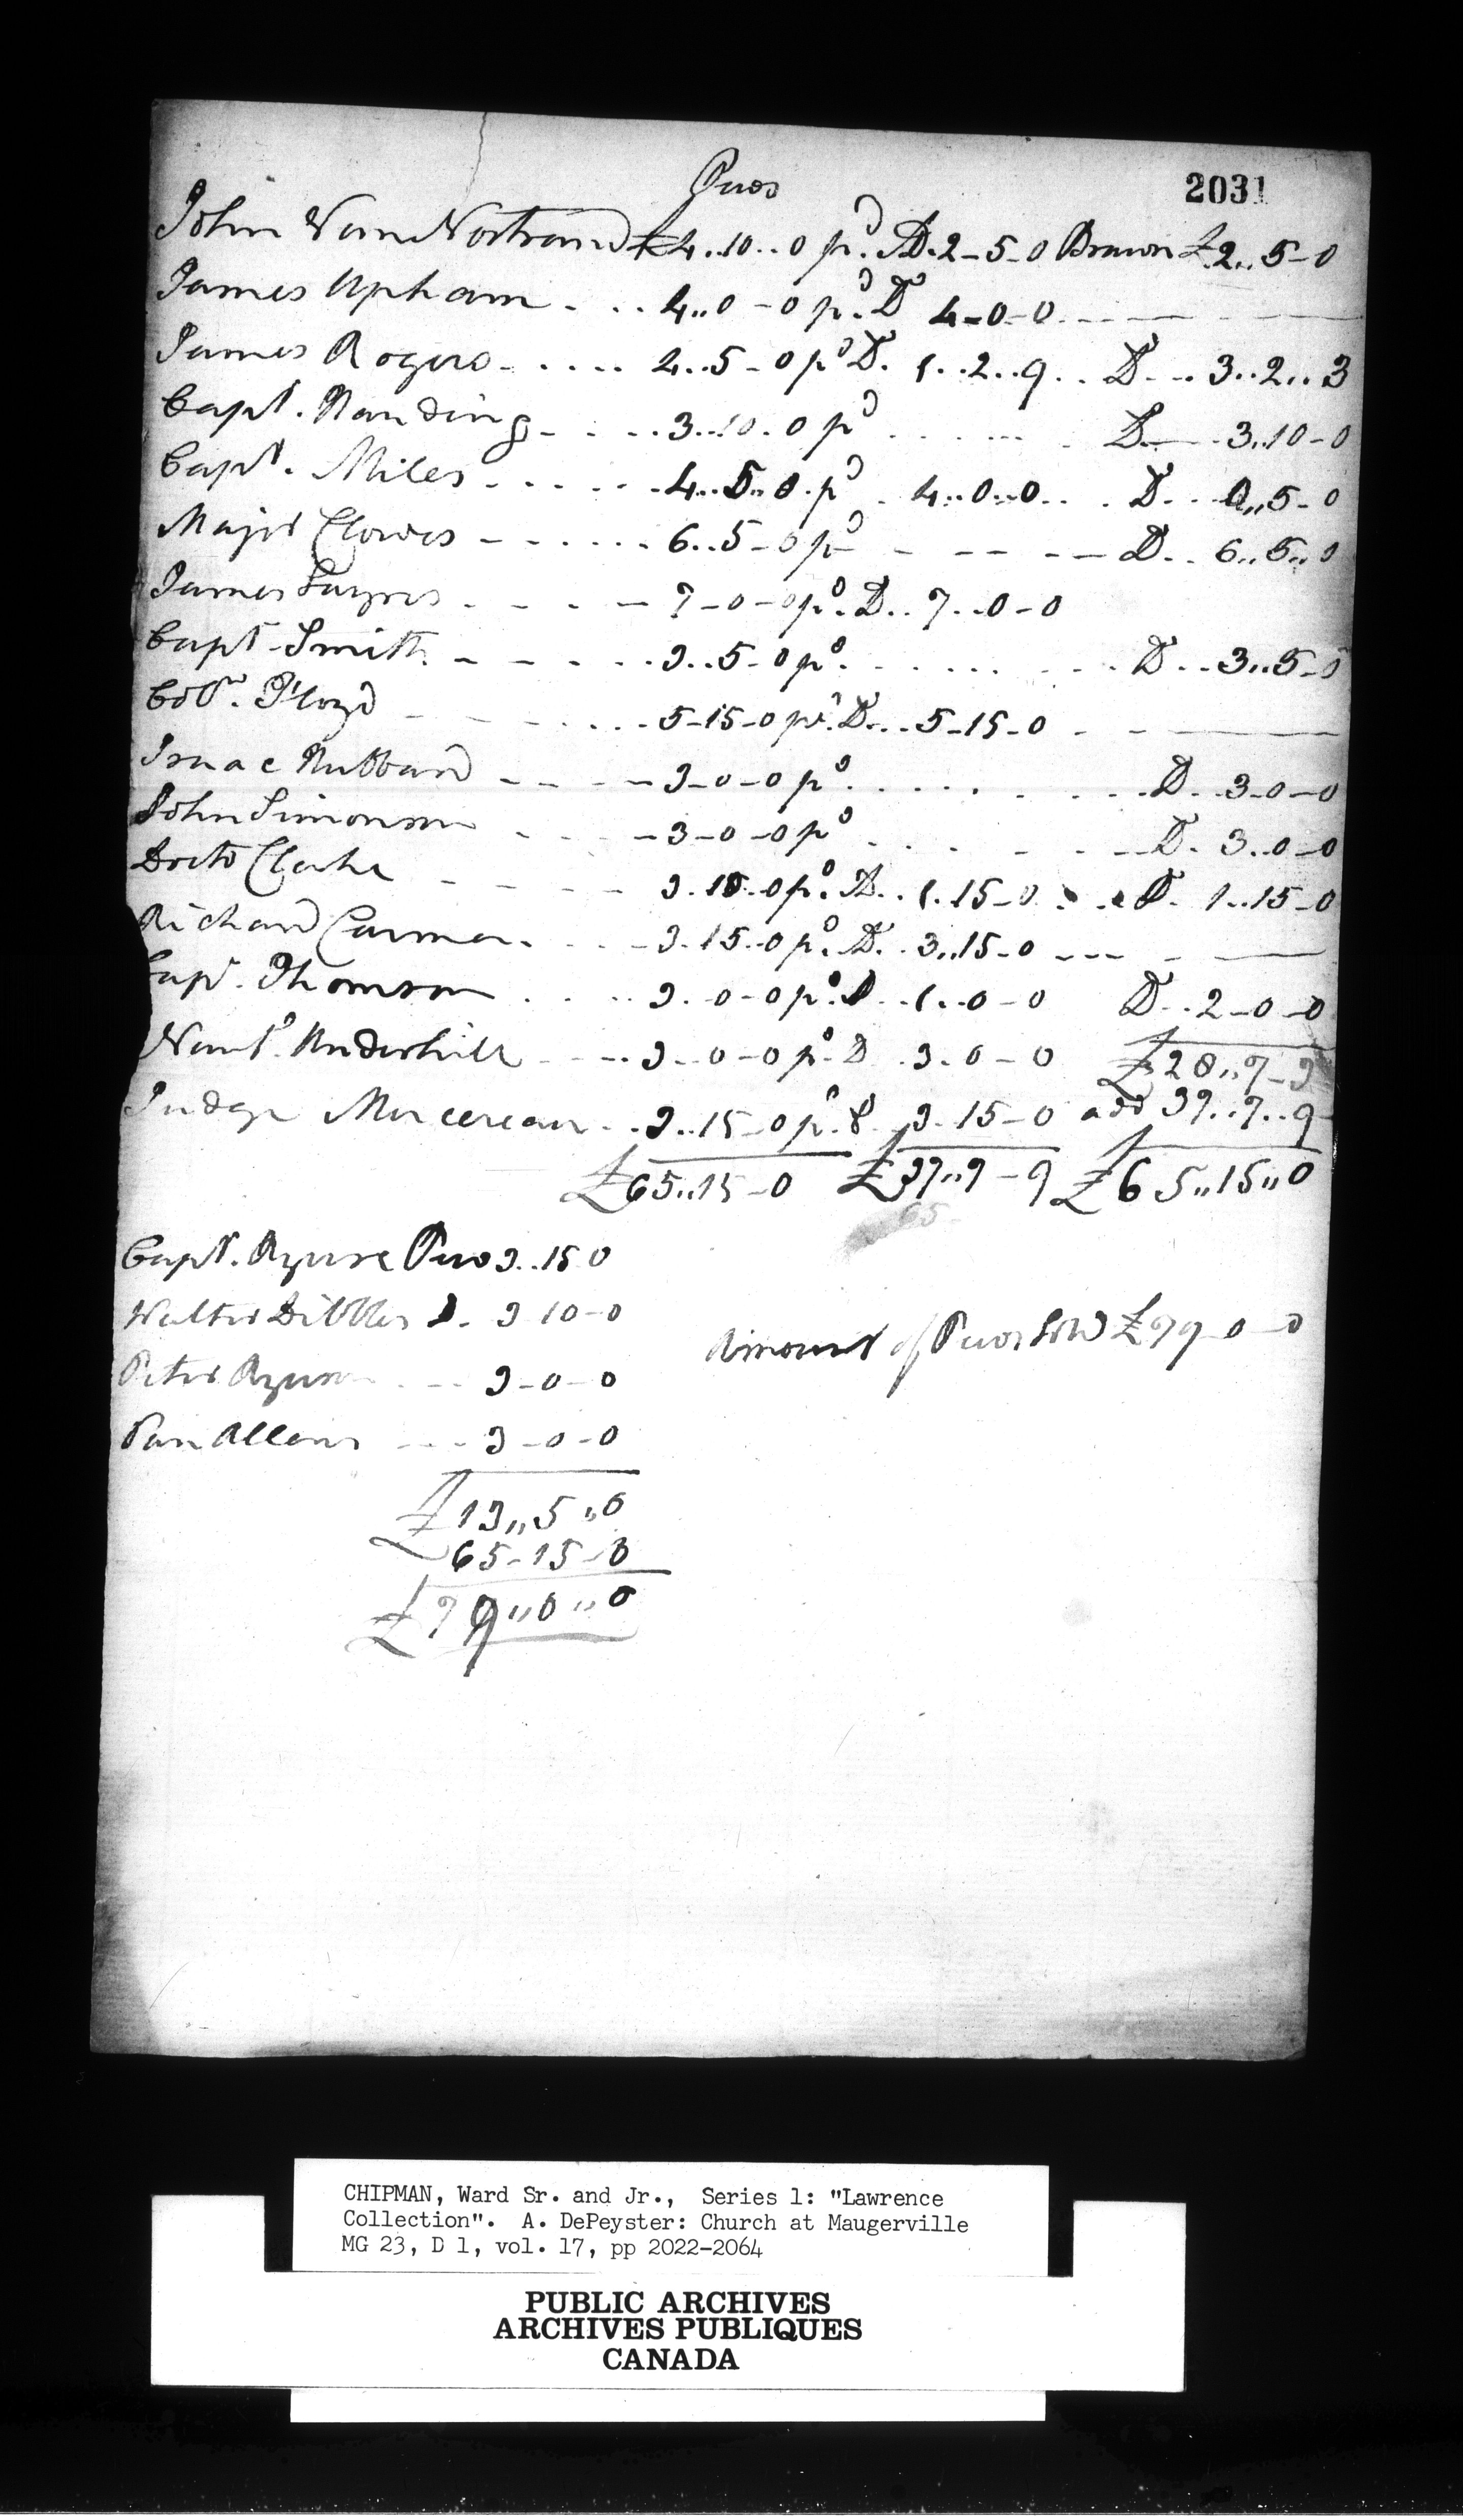 Pues
2031
John Van Nortrand £4..10..0 pd. D. 2-5-0 Brawn £2..5-0
James Upham - . . 4,,0-0 pd. D 4-0-0
James Rogers - . . . . 4..5-0 pd D. 1..2..9 . . D. .. 3..2..3
Capt. Harding - . . . 3..10.0 pd . . . . D. — 3..10-0
Capt. Miles - . . . . 4..5..0. pd . 4..0..0 . . D. . 0,,5-0
Major Clowes - - . . . . 6..5-0 pd - - - - D. . 6..5..0
James Sayres . - - - 7-0-0 pd. D. . 7..0-0
Capt Smith. - - - . . 3..5-0 pd. . . . . D. . 3..5-0
Coll. Floyd - - - . . . 5-15-0 pd. D. .. 5-15-0
Isaac Hubbard - - - 3-0-0 pd. . . . . D. . 3-0-0
John Simonson - - - 3-0-0 pd . . - - D. 3..0-0
Doctr Clarke - - - - 3.10.0 pd. D. . 1.15-0 . . D. 1..15-0
Richard Carman. - . . - 3.15.0 pd. D. . 3,,15-0 ---
Capt. Thomson . . . . 3..0-0 pd. D . . 1..0-0 D. . 2-0-0
Nanl. Underhill - - .. 3..0-0 pd. D . 3.0-0 £28,,7-3
Judge Mercereau . . 3..15-0 pd. D. 3.15-0 add 37..7..9
£65,,15-0 £37,,7-9 £65,,15,,0
65-
Capt. Azure Pew 3..15 0
Walter Dibblee D. 3 10-0
Peter Azure . . -- 3-0-0
Parr Allens --- 3-0-0
Amount of Pues sold £79-0-0
£13,,5,,0
65-15-0
£79,,0,,0
CHIPMAN, Ward Sr. and Jr., Series 1: "Lawrence
Collection". A. DePeyster: Church at Maugerville
MG 23, D 1, vol. 17, pp 2022-2064
PUBLIC ARCHIVES
ARCHIVES PUBLIQUES
CANADA